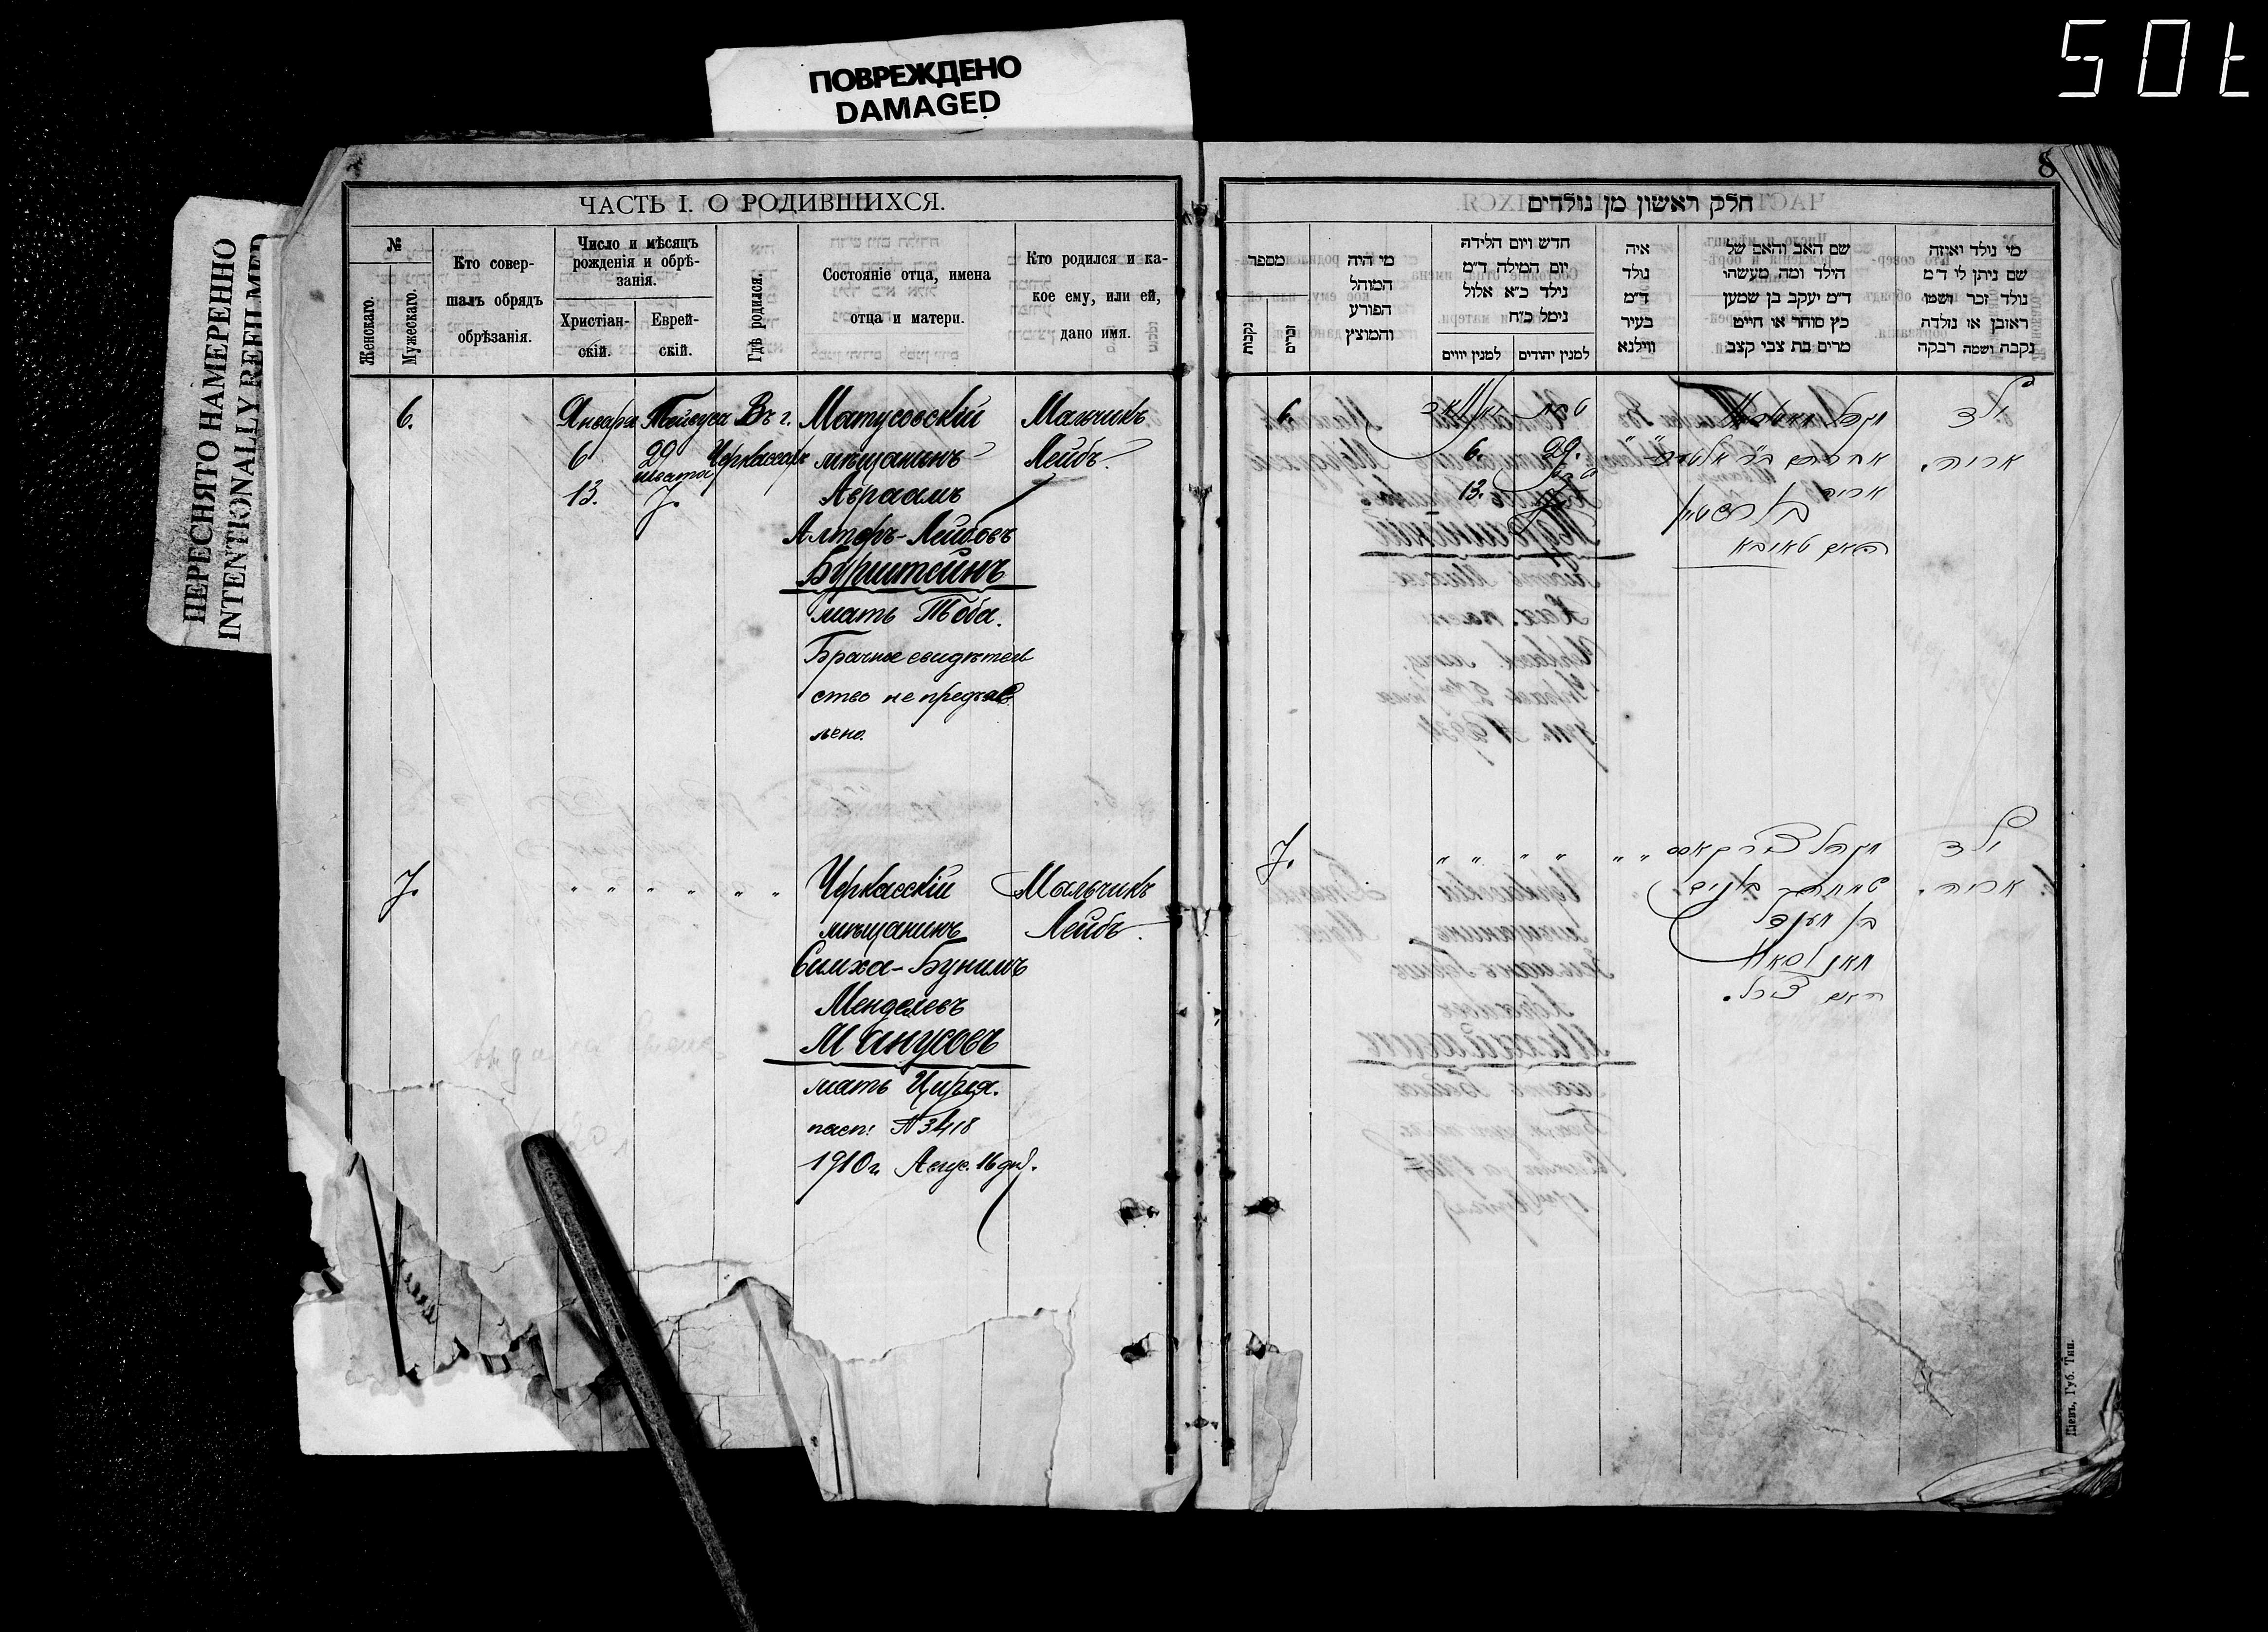 ПОВРЕЖДЕНО
DAMAGED
50t
ПЕРЕСНЯТО НАМЕРЕННО
INTENTIONALLY REFILMED
8
ЧАСТЬ I. О РОДИВШИХСЯ.
№
Женскаго.
Мужескаго.
Кто совер-
шалъ обрядъ
обрѣзанія.
Число и мѣсяцъ
рожденія и обрѣ-
занія.
Христіан-
скій.
Еврей-
скій.
Гдѣ родился.
Состояніе отца, имена
отца и матери.
Кто родился и ка-
кое ему, или ей,
дано имя.
6.
Января
6
13.
Тейвуса
29
шватъ
7.
Въ г.
Черкассахъ
Матусовскій
мѣщанинъ
Авраамъ
Алтеръ-Лейбовъ
Бурштейнъ
мать Тоба.
Брачное свидѣтель
ство не предъяв
лено.
Мальчикъ
Лейбъ.
7.
" " " " " "
Черкасскій
мѣщанинъ
Симха-Бунимъ
Менделевъ
Манусовъ
мать Цирля.
пасп: № 3418
1910 г. Авгус. 16 дня.
Мальчикъ
Лейбъ.
חלק ראשון מן נולדים
מספר
נקבות
זכרים
מי היה
המוהל
הפורע
והמוצץ
חדש ויום הלידה
יום המילה ד״מ
נילד כ״א אלול
נימל כ״ח
למנין יוונים
למנין יהודים
איה
נולד
ד״מ
בעיר
ווילנא
שם האב והאם של
הילד ומה מעשהו
ד״מ יעקב בן שמען
כץ סוחר או חייט
מרים בת צבי קצב
מי נולד ואיזה
שם ניתן לו ד״מ
נולד זכר ושמו
ראובן או נולדה
נקבה ושמה רבקה
6.
6.
13.
טבת
29.
שבט
7
אברהם ב״ר אלטר
אריה
בורשטיין
האם טאובא
ילד
אריה.
7.
" " " " " "
מקהל צירקאסס
שמחה בונים
בן מענדל
מאנוסאוו
האם צירל.
ילד
אריה.
Кіевъ, Губ. Тип.